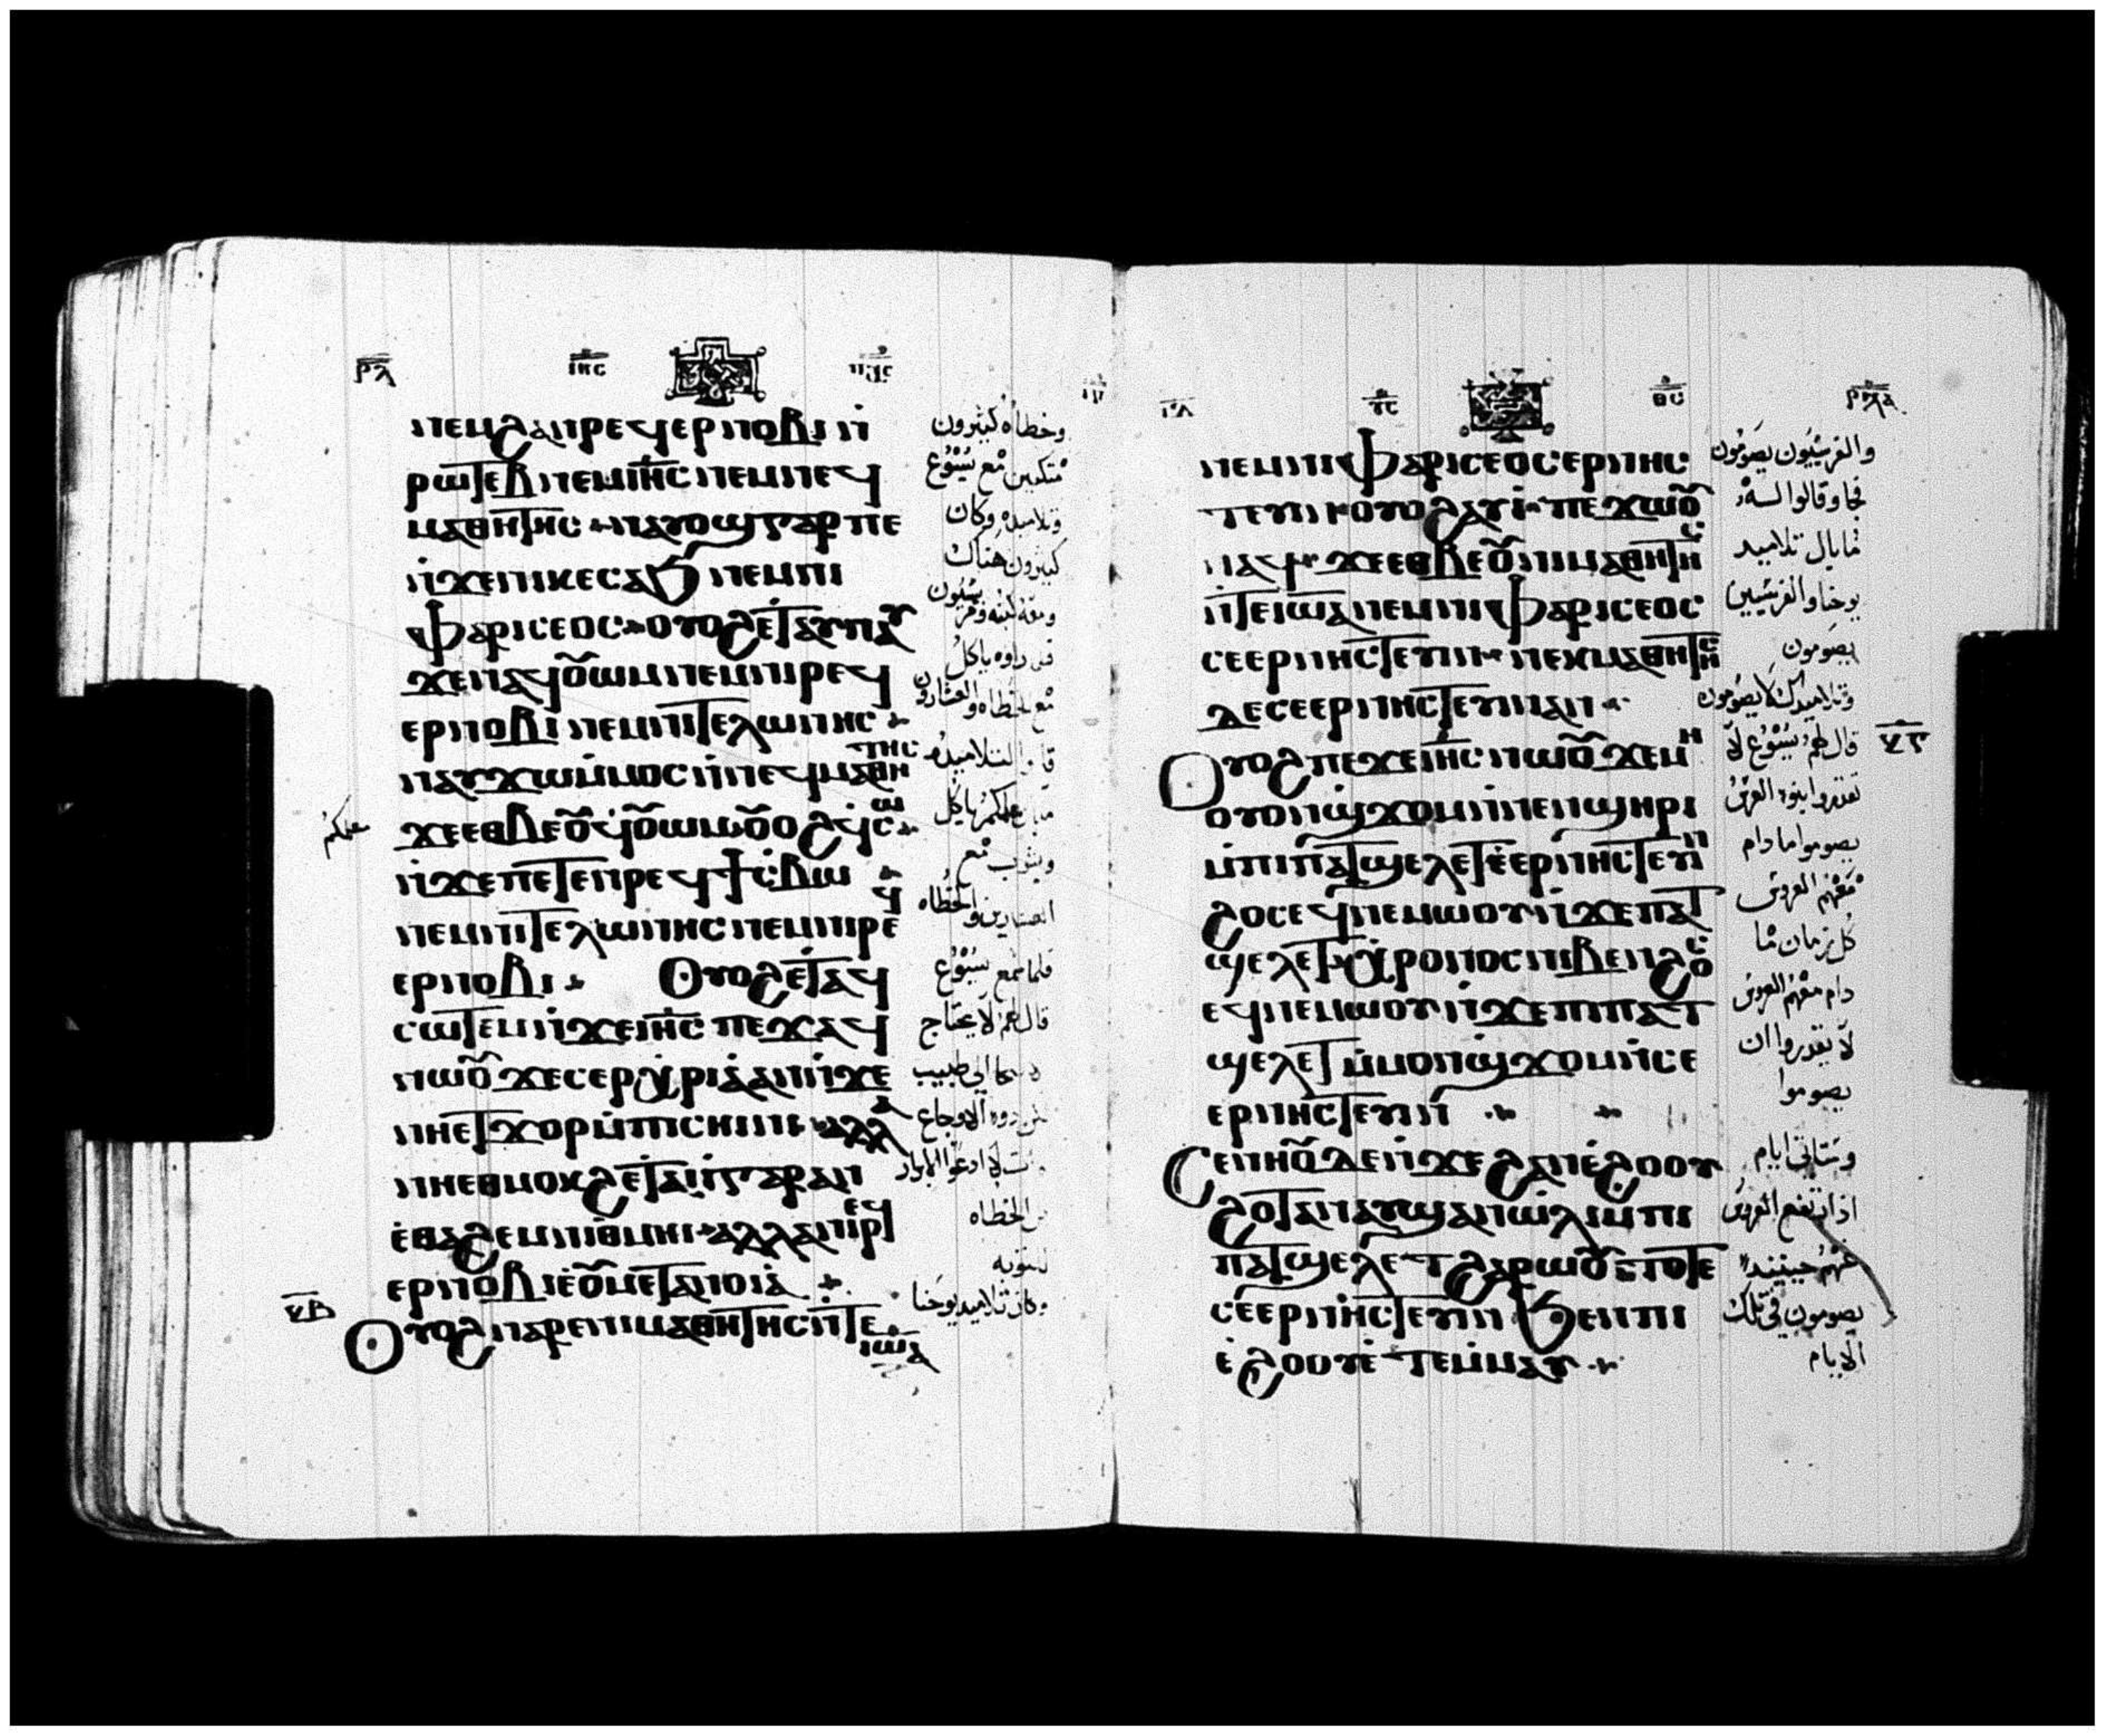 ⲣⲗ ⲓⲏⲥ
ⲛⲉⲙϩⲁⲛⲣⲉϥⲉⲣⲛⲟⲃⲓ ⲛ̀
ⲣⲱⲧⲉⲃ ⲛⲉⲙⲓⲏⲥ ⲛⲉⲙⲛⲉϥ
ⲙⲁⲑⲏⲧⲏⲥ ⲛⲁⲩⲟϣ ⲅⲁⲣ ⲡⲉ
ⲛ̀ϫⲉⲛⲓⲕⲉⲥⲁϧ ⲛⲉⲙⲛⲓ
ⲫⲁⲣⲓⲥⲉⲟⲥ ⲟⲩⲟϩ ⲉⲧⲁⲩⲛⲁⲩ
ϫⲉⲛⲁϥⲟⲩⲱⲙ ⲛⲉⲙⲛⲓⲣⲉϥ
ⲉⲣⲛⲟⲃⲓ ⲛⲉⲙⲛⲓⲧⲉⲗⲱⲛⲏⲥ
ⲛⲁⲩϫⲱⲙ̀ⲙⲟⲥ ⲛ̀ⲛⲉϥⲙⲁⲑⲏⲧⲏⲥ
ϫⲉⲉⲑⲃⲉⲟⲩ ϥⲟⲩⲱⲙ ⲟⲩⲟϩ ϥⲥⲱ
ⲛ̀ϫⲉⲡⲉⲧⲉⲛⲣⲉϥϯⲥ̀ⲃⲱ
ⲛⲉⲙⲛⲓⲧⲉⲗⲱⲛⲏⲥ ⲛⲉⲙⲛⲓⲣⲉϥ
ⲉⲣⲛⲟⲃⲓ ⲟⲩⲟϩ ⲉⲧⲁϥ
ⲥⲱⲧⲉⲙ ⲛ̀ϫⲉⲓⲏⲥ ⲡⲉϫⲁϥ
ⲛⲱⲟⲩ ϫⲉⲥⲉⲣⲭⲣⲓⲁ ⲁⲛ ⲛ̀ϫⲉ
ⲛⲏⲉⲧϫⲟⲣ ⲙ̀ⲡⲓⲥⲏⲓⲛⲓ ⲁⲗⲗⲁ
ⲛⲏⲉⲑⲙⲟⲕϩ ⲉⲧⲁⲓ̀ ⲅⲁⲣ ⲁⲛ
ⲉ̀ⲑⲁϩⲉⲙ ⲛⲓⲑⲙⲏⲓ ⲁⲗⲗⲁ ⲛⲓⲣⲉϥ
ⲉⲣⲛⲟⲃⲓ ⲉ̀ⲟⲩⲙⲉⲧⲁⲛⲟⲓⲁ
ⲟⲩⲟϩ ⲛⲁⲣⲉⲛⲓⲙⲁⲑⲏⲧⲏⲥ ⲛ̀ⲧⲉ ⲓⲱⲁ
وخطاه كثيرون
متكين مع يسوع
وتلاميده وكان
كثيرون هناك
قد راوه ياكل
مع الخطاه والعشارون
علمكم
فلما سمع يسوع
قال لهم لا يحتاج
من الخطاه
للتوبه
وكان تلاميد يوحنا
ⲣⲗⲁ
ⲛⲉⲙⲛⲓⲫⲁⲣⲓⲥⲉⲟⲥ ⲉⲣⲛⲏⲥ
ⲧⲉⲩⲓⲛ ⲟⲩⲟϩ ⲁⲩⲓ̀ ⲡⲉϫⲱⲟⲩ
ⲛⲁϥ ϫⲉⲉⲑⲃⲉⲟⲩ ⲛⲓⲙⲁⲑⲏⲧⲏⲥ
ⲛ̀ⲧⲉⲓⲱⲁ ⲛⲉⲙⲛⲓⲫⲁⲣⲓⲥⲉⲟⲥ
ⲥⲉⲉⲣⲛⲏⲥⲧⲉⲩⲓⲛ ⲛⲉⲕⲙⲁⲑⲏⲧⲏⲥ
ⲇⲉ ⲥⲉⲉⲣⲛⲏⲥⲧⲉⲩⲓⲛ ⲁⲛ
ⲟⲩⲟϩ ⲡⲉϫⲉⲓⲏⲥ ⲛⲱⲟⲩ ϫⲉⲙⲏ
ⲟⲩⲟⲛϣϫⲟⲙ ⲛ̀ⲛⲉⲛϣⲏⲣⲓ
ⲙ̀ⲡⲓⲡⲁⲧϣⲉⲗⲉⲧ ⲉ̀ⲉⲣⲛⲏⲥⲧⲉⲩⲓⲛ
ϩⲟⲥ ⲉϥⲛⲉⲙⲱⲟⲩ ⲛ̀ϫⲉⲡⲁⲧ
ϣⲉⲗⲉⲧ ⲭⲣⲟⲛⲟⲥ ⲛⲓⲃⲉⲛ ϩⲟⲥ
ⲉϥⲛⲉⲙⲱⲟⲩ ⲛ̀ϫⲉⲡⲓⲡⲁⲧ
ϣⲉⲗⲉⲧ ⲙ̀ⲙⲟⲛϣϫⲟⲙ ⲛ̀ⲥⲉ
ⲉⲣⲛⲏⲥⲧⲉⲩⲓⲛ
ⲥⲉⲛⲏⲟⲩ ⲇⲉ ⲛ̀ϫⲉϩⲁⲛⲉ̀ϩⲟⲟⲩ
ϩⲟⲧⲁⲛ ⲁⲩϣⲁⲛⲱ̀ⲗⲓ ⲙ̀ⲡⲓ
ⲡⲁⲧϣⲉⲗⲉⲧ ϩⲁⲣⲱⲟⲩ ⲧⲟⲧⲉ
ⲥⲉⲉⲣⲛⲏⲥⲧⲉⲩⲓⲛ ϧⲉⲛⲛⲓ
ⲉ̀ϩⲟⲟⲩ ⲉ̀ⲧⲉⲙ̀ⲙⲁⲩ
والفريسيون يصومون
فجاو وقالوا له
ما بال تلاميد
يوحنا والفريسيين
يصومون
وتلاميدك لا يصومون
قال لهم يسوع لا
تقدروا بنو العرس
يصوموا ما دام
معهم العروس
كل زمان ما
دام معهم العروس
لا يقدروا ان
يصوموا
وستاتي ايام
اذا ارتفع العروس
عنهم حينيد
يصومون في تلك
الايام